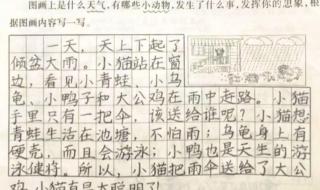 图画上是什么天气,有哪些小动物,发生了什么事,发挥你的想象,根
据图画内容写一写。
一天,天上下起了
倾盆大雨。小猫站在窗
边,看见小青蛙、小乌
龟、小鸭子和大公鸡在雨中赶路。小猫
手里只有一把伞,该送给谁呢?小猫想:
青蛙生活在池塘,不怕雨;乌龟身上有
硬壳,而且会游泳;小鸭也是天生的游
泳健将。所以,小猫把雨伞送给了大公
鸡。小猫真是太聪明了!